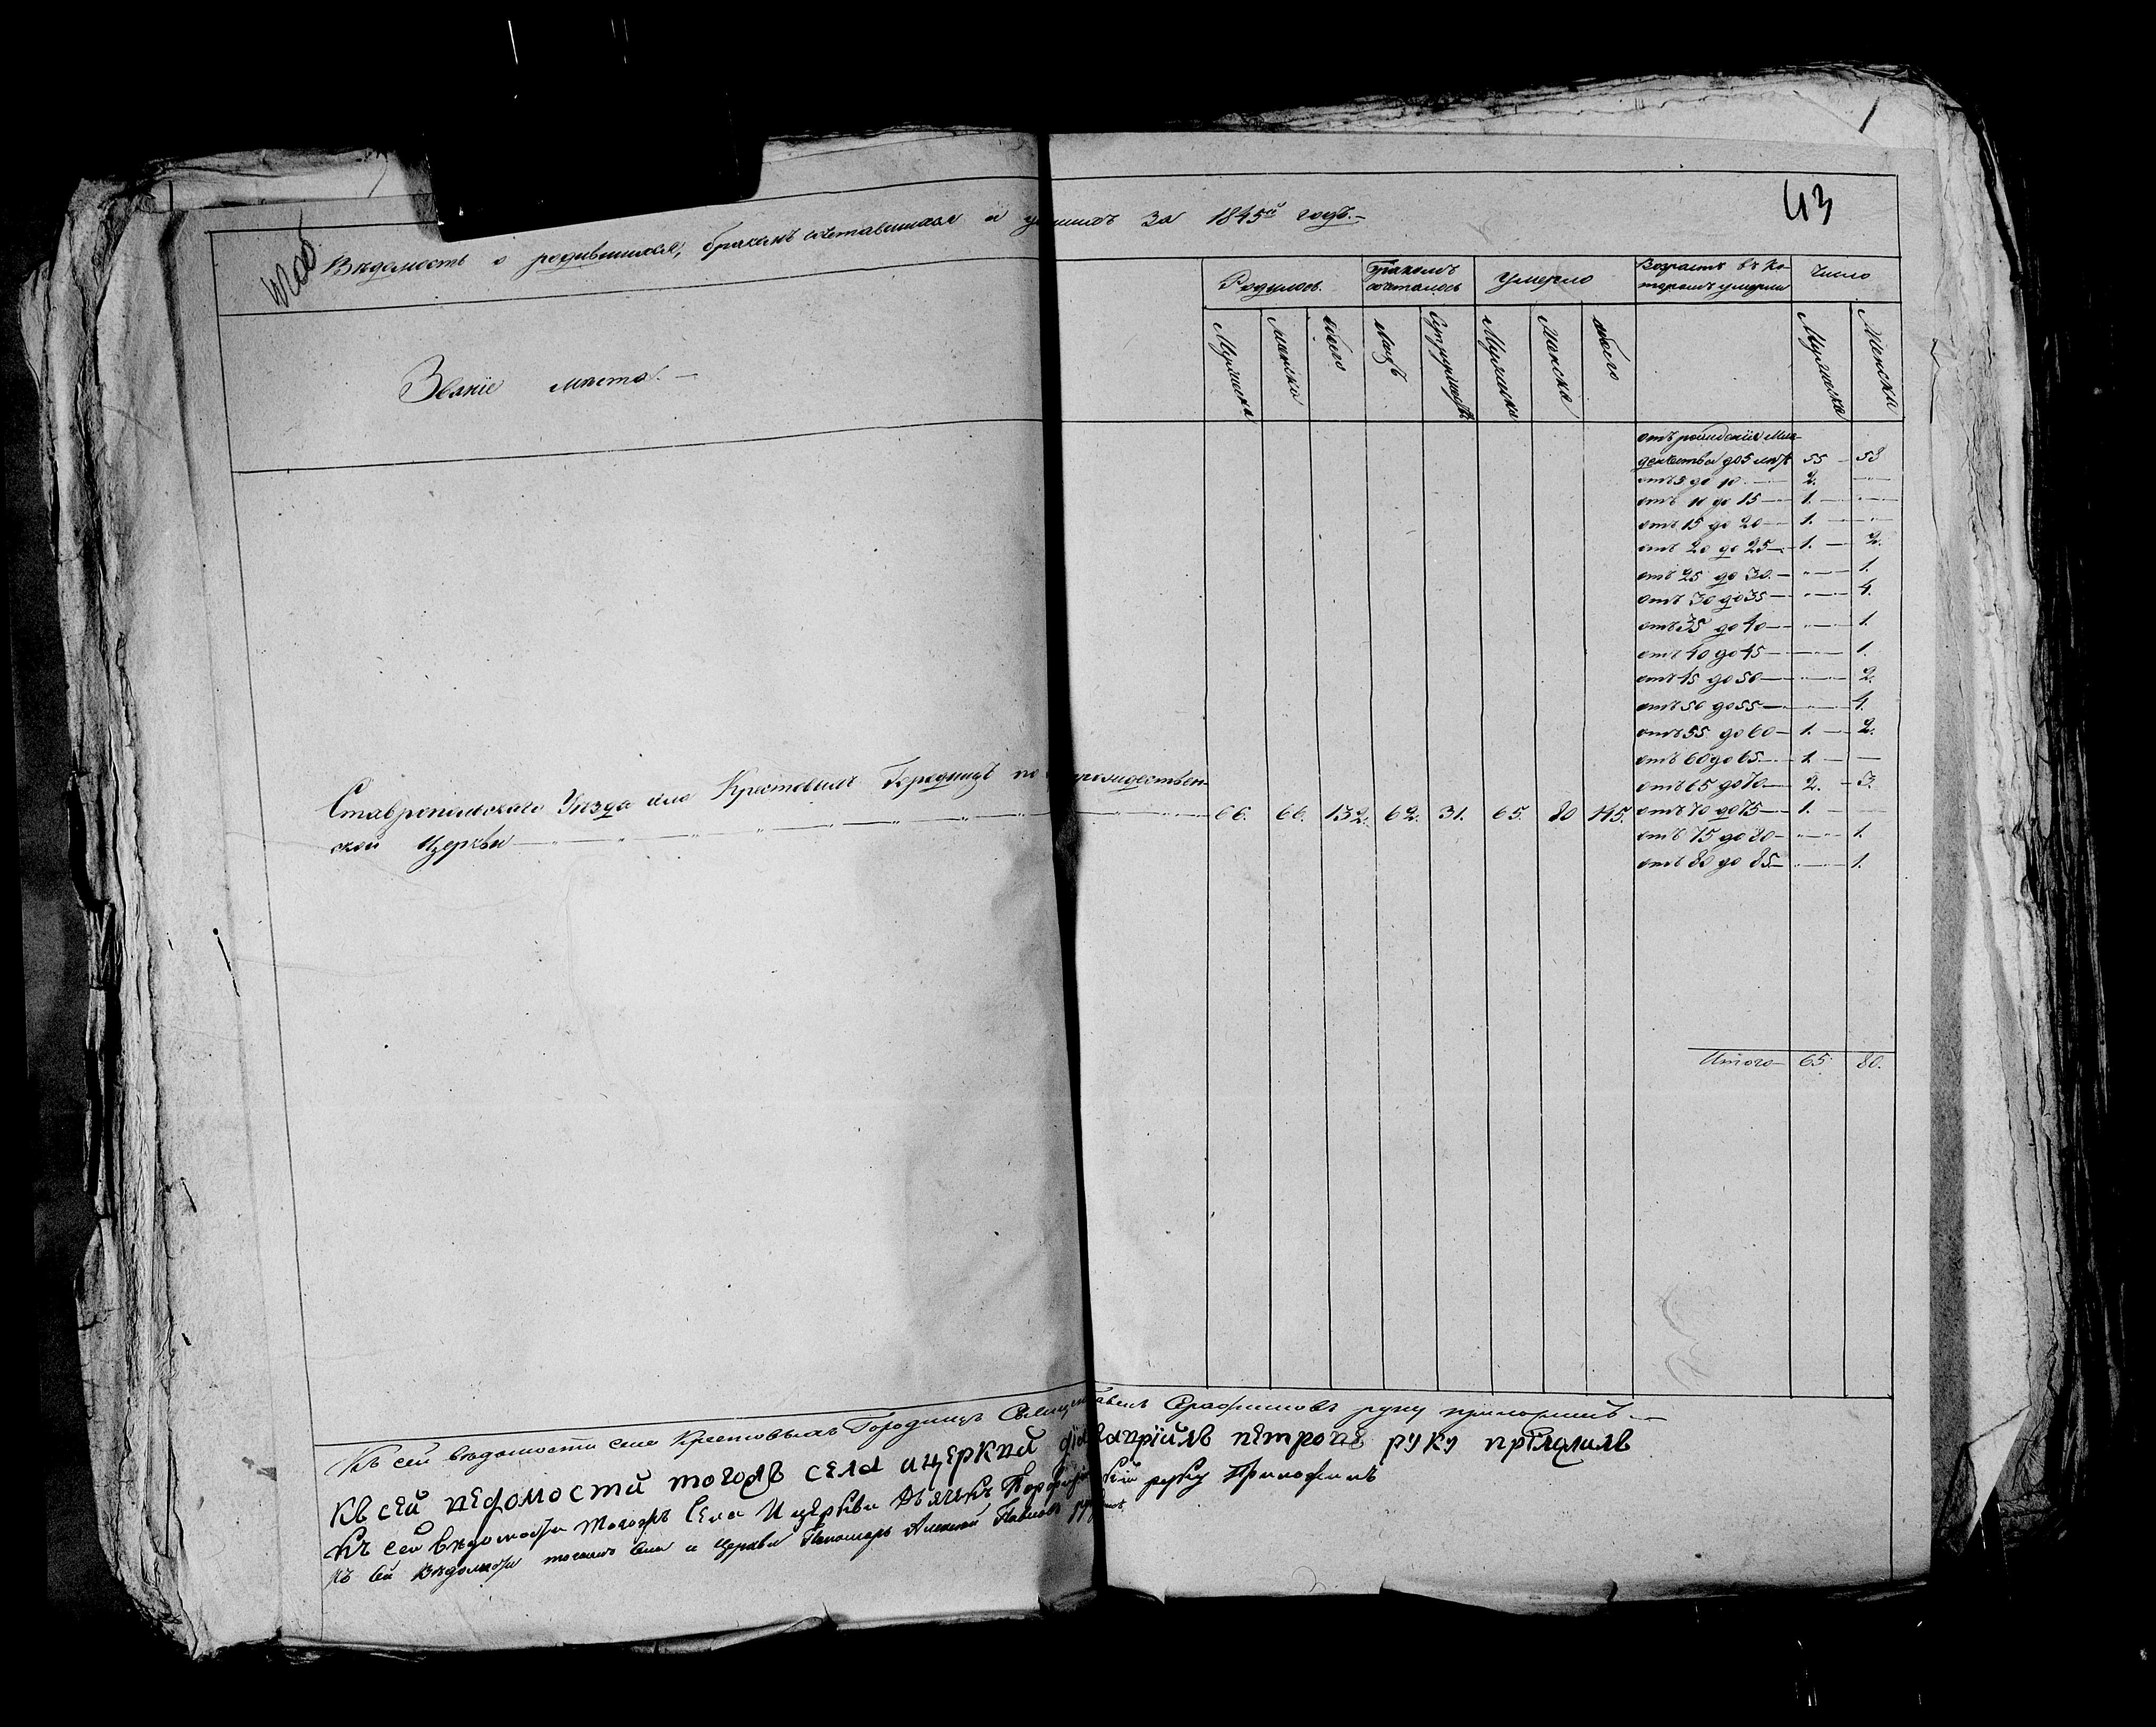 43
Вѣдомость о родившихся, бракомъ сочетавшихся и умшихъ за 1845й годъ.-
Званіе мѣста.-
Родилось.
бракомъ сочеталось
Умерло
Возрастъ въ ко-
торомъ умерли
Число
Мужеска
Женска
обоего
Лицъ
Супружествъ
Мужеска
Женска
обоего
Мужеска
Женска
отъ рожденія Мла-
денчества до 5 лѣтъ 55 - 53
отъ 5 до 10 2.
отъ 10 до 15 1.
отъ 15 до 20 1.
отъ 20 до 25 1. 2.
отъ 25 до 30. 1.
отъ 30 до 35 4.
отъ 35 до 40 1.
отъ 40 до 45 1.
отъ 45 до 50 2.
отъ 50 до 55
отъ 55 до 60 1. 2.
отъ 60 до 65 1.
отъ 65 до 70 2. 3.
Ставропольскаго Уѣзда села Крестовыхъ Городищъ рождествен-
ской Церкви 66. 66. 132. 62. 31. 65. 80 145. отъ 70 до 75 1.
отъ 75 до 80 1.
отъ 80 до 85 1.
Итого 65 80.
Къ сей вѣдомости села Крестовыхъ Городищъ Серафимовъ руку приложилъ.
Къ сей ведомости тогожъ села ицеркви петровъ руку приложилъ
Къ сей вѣдомости тогожъ Села И церкви Дьячекъ руку Приложилъ
Къ сей Вѣдомости тогожъ села и Церкви Пономарь Алексей Павловъ